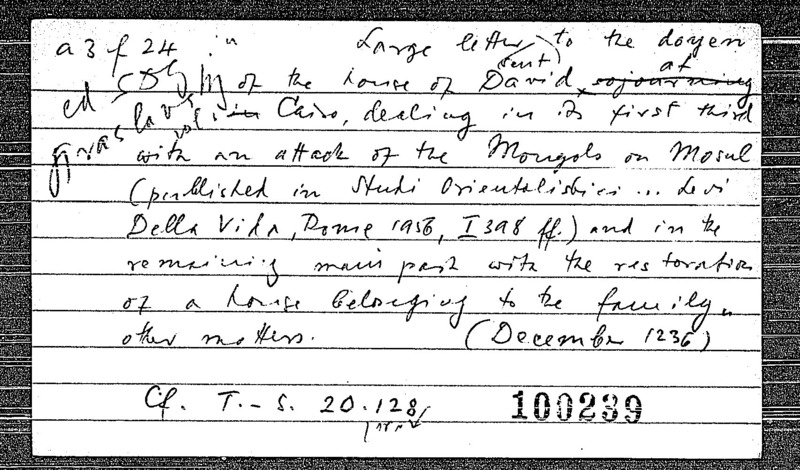 a 3 f 24 Large letter to the doyen
(sent)
of the house of David, sojourning at
in Cairo, dealing in its first third
with an attack of the Mongols on Mosul
(published in Studi Orientalistici ... Levi
Della Vida, Rome 1956, I 398 ff.) and in the
remaining main part with the restoration
of a house belonging to the family,
other matters. (December 1236)
Cf. T.-S. 20.128
100239
ed